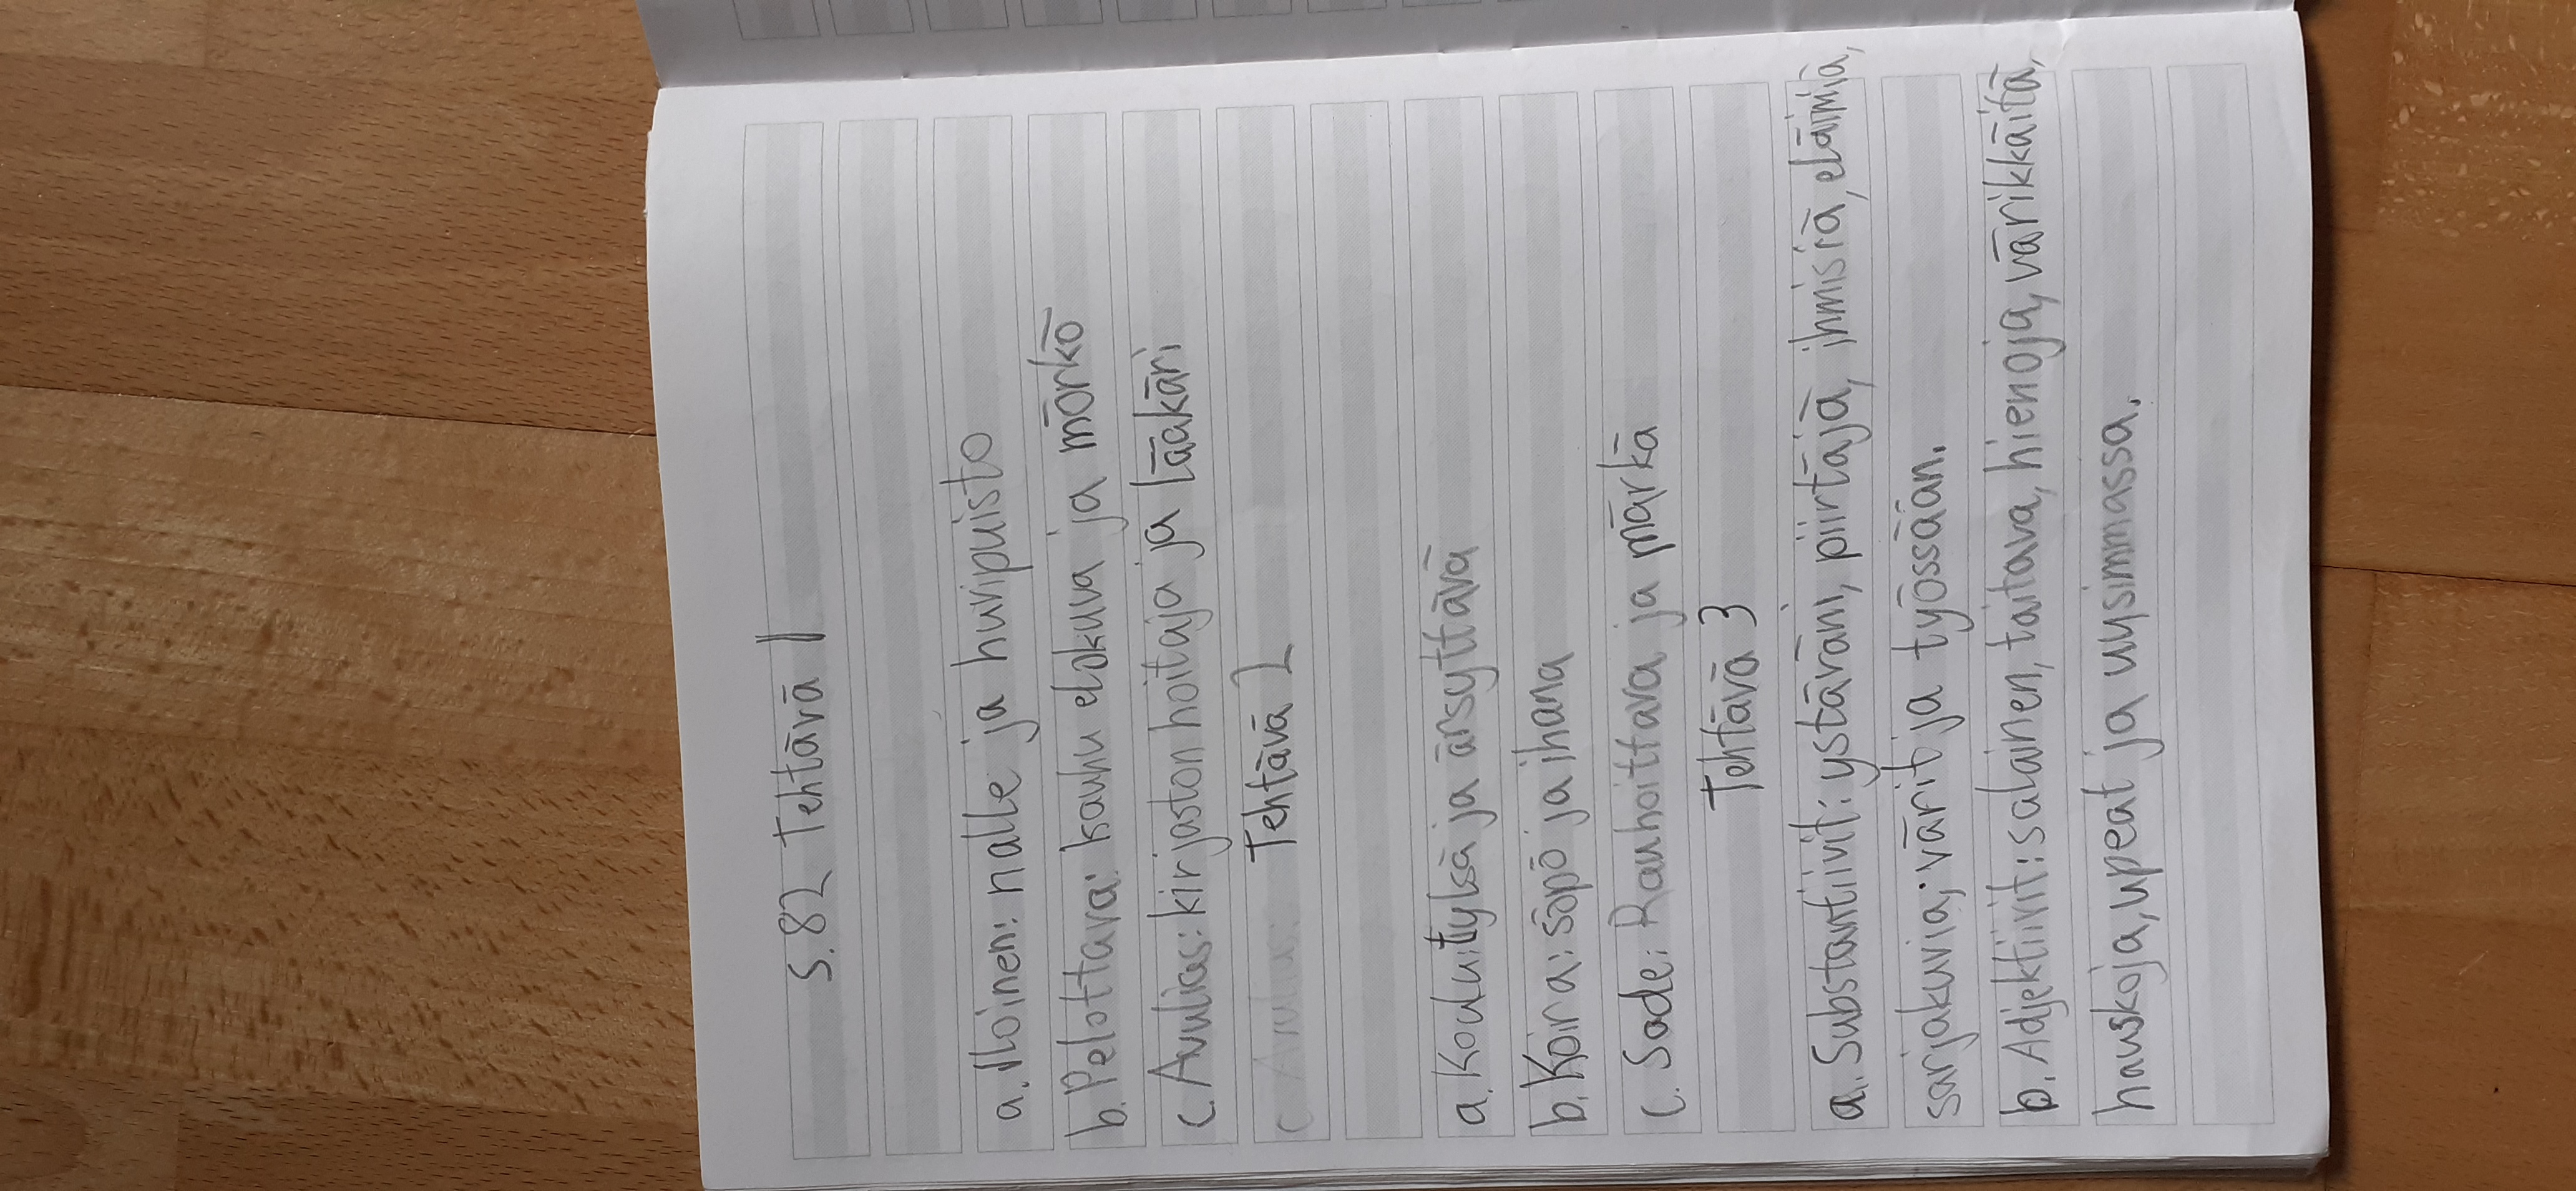 s.82 Tehtävä 1
a. Iloinen: nalle ja huvipuisto
b. Pelottava: kauhu elokuva ja mörkö
c. Avulias: kirjaston hoitaja ja lääkäri
c Avulias: Tehtävä 2
a. Koulu: tylsä ja ärsyttävä
b. Koira: söpö ja ihana
c. Sade: Rauhoittava ja märkä
Tehtävä 3
a. Substantiivit: ystäväni, piirtäjä, ihmisiä, eläimiä,
sarjakuvia, värit ja työssään.
b. Adjektiivit: salainen, taitava, hienoja, värikkäitä,
hauskoja, upeat ja uusimmassa.